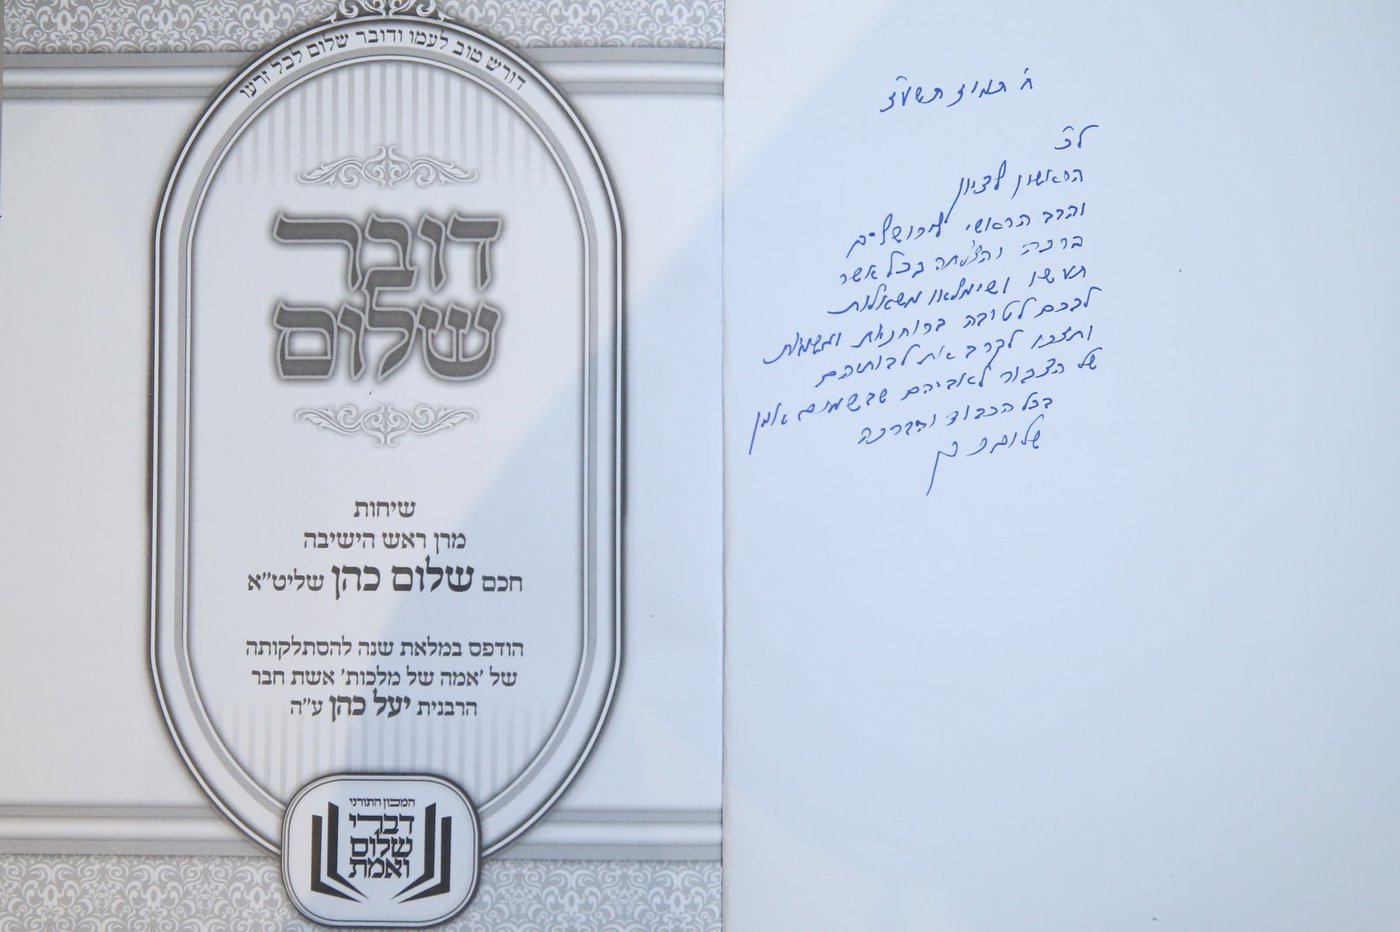 דורש טוב לעמו ודובר שלום לכל זרעו
דובר
שלום
שיחות
מרן ראש הישיבה
חכם שלום כהן שליט"א
הודפס במלאת שנה להסתלקותה
של 'אמה של מלכות' אשת חבר
הרבנית יעל כהן ע"ה
המכון התורני
דברי
שלום
ואמת
ח' תמוז תשע"ז
לכ'
הראשון לציון
והרב הראשי לירושלים
ברכה והצלחה בכל אשר
תעשו ושימלאו משאלות
לבכם לטובה ברוחניות וגשמיות
ותזכו לקרב את לבותיהם
של הצבור לאביהם שבשמים אמן
בכל הכבוד והברכה
שלום כהן